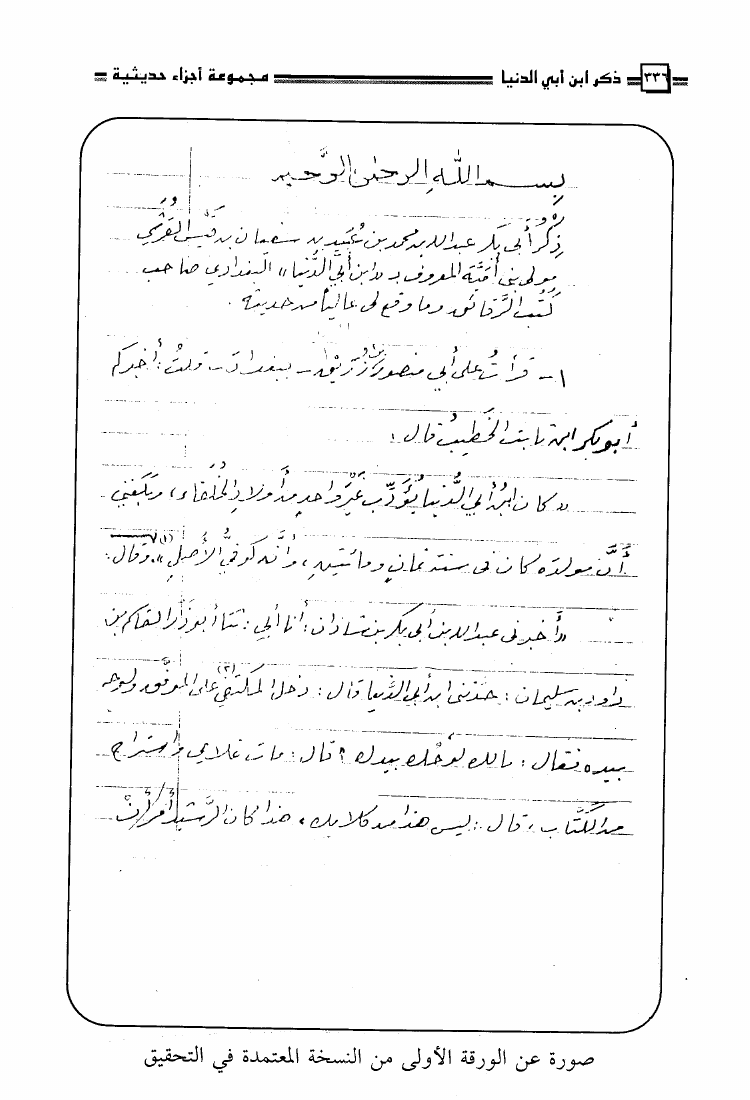 ٣٣٦ ذكر ابن أبي الدنيا مجموعة أجزاء حديثية
بسم الله الرحمن الرحيم
ذِكْرُ أبي بكر عبد الله بن محمد بن عُبَيد بن سفيان بن قَيْس القُرَشي
مولى بني أُمَيَّة المعروف بـ «ابن أبي الدُّنيا» البغدادي صاحب
كُتُب الرَّقائق وما وقع لي عالياً من حديثه .
١- قرأتُ على أبي منصور بن زُرَيْق - ببغداد - قلتُ : أخبركم
أبو بكر ابن ثابت الخَطيبُ قال :
«كان ابنُ أبي الدُّنيا يُؤَدِّب غَيْرَ واحدٍ من أولادِ الخُلَفاء ، وبَلَغني
أنَّ مولدَه كان في سنة ثمانٍ ومائتين ، وأنَّه كوفيُّ الأصلِ»(١). وقال :
«أخبرني عبد الله بن أبي بكر بن شاذان : أنا أبي : ثنا أبو ذَرٍّ القاسم بن
داود بن سليمان : حدَّثني ابن أبي الدُّنيا قال : دخل المكتفي(٢) على الموفَّق ولوحه
بيده فقال : مالك لوحُك بيدك ؟ قال : مات غلامي واستراح
من الكُتَّاب ، قال : ليس هذا من كلامك ، هذا كان الرَّشيدُ أَمَرَ أنْ
صورة عن الورقة الأولى من النسخة المعتمدة في التحقيق